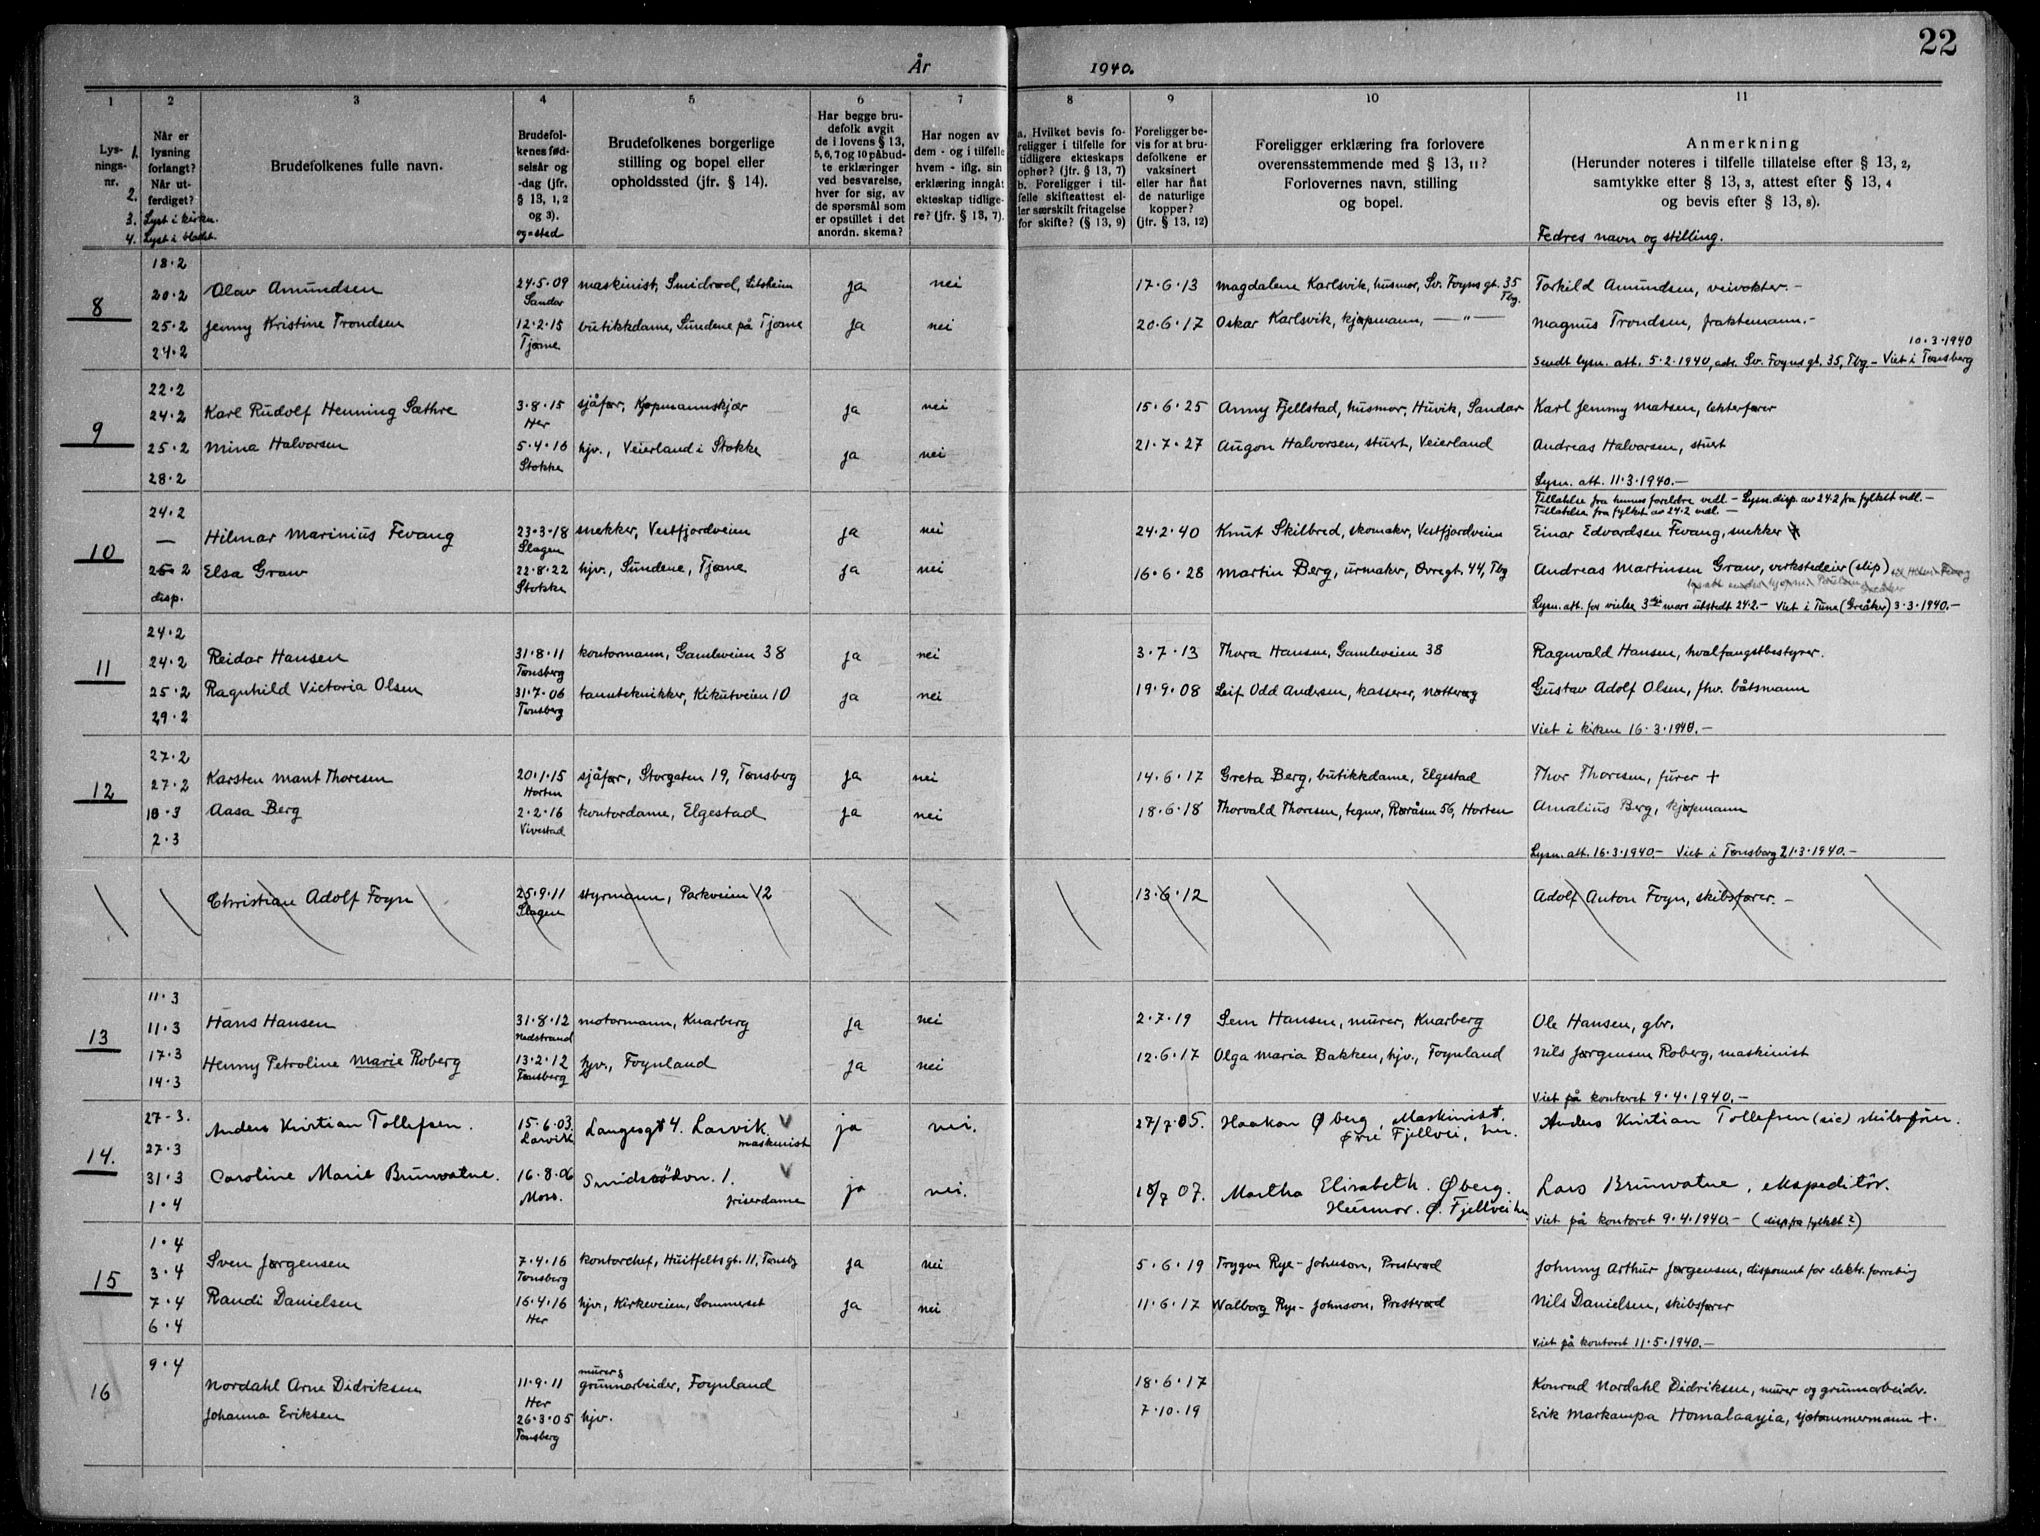 22
År 1940.
1 2 3 4 5 6 7 8 9 10 11
Lysningsnr. 1. 2. 3. 4.
Når er lysning forlangt? Når utferdiget? Lyst i kirken. Lyst i bladet.
Brudefolkenes fulle navn.
Brudefolkenes fødselsår og -dag (jfr. § 13, 1, 2 og 3). og -sted
Brudefolkenes borgerlige stilling og bopel eller opholdssted (jfr. § 14).
Har begge brudefolk avgit de i lovens § 13, 5, 6, 7 og 10 påbudte erklæringer ved besvarelse, hver for sig, av de spørsmål som er opstillet i det anordn. skema?
Har nogen av dem - og i tilfelle hvem - iflg. sin erklæring inngåt ekteskap tidligere? (jfr. § 13, 7).
a. Hvilket bevis foreligger i tilfelle for tidligere ekteskaps ophør? (jfr. § 13, 7) b. Foreligger i tilfelle skifteattest eller særskilt fritagelse for skifte? (§ 13, 9)
Foreligger bevis for at brudefolkene er vaksinert eller har hat de naturlige kopper? (jfr. § 13, 12)
Foreligger erklæring fra forlovere overensstemmende med § 13, 11? Forlovernes navn, stilling og bopel.
Anmerkning (Herunder noteres i tilfelle tillatelse efter § 13, 2, samtykke efter § 13, 3, attest efter § 13, 4 og bevis efter § 13, 8).
Fedres navn og stilling.
18.2
8 20.2 Olav Amundsen 24.5.09 Sandar maskinist, Smidrød, Sits­heim ja nei 17.6.13 Magdalene Karlsvik, husmor, Sv. Foyns gt. 35 Tbg. Torkild Amundsen, veivokter. -
25.2 Jenny Kristine Trondsen 12.2.15 Tjøme butikkdame, Sundene på Tjøme ja nei 20.6.17 Oskar Karlsvik, kjøpmann, —"— Magnus Trondsen, fraktemann. -
24.2 10.3.1940
Sendt lysn. att. 5.2.1940, adr. Sv. Foyns gt. 35, Tbg - Viet i Tønsberg
22.2
9 24.2 Karl Rudolf Henning Sæthre 3.8.15 Her sjåfør, Kjøpmannskjær ja nei 15.6.25 Anny Fjellstad, husmor, Huvik, Sandar Karl Jenny Matsen, lekterfører
25.2 Mina Halvorsen 5.4.16 Stokke hjv., Veierland i Stokke ja nei 21.7.27 Augon Halvorsen, stuert, Veierland Andreas Halvorsen, stuert
28.2 Lysn. att. 11.3.1940. -
24.2 Tillatelse fra hennes foreldre vedl. - Lysn. disp. av 24.2 fra fylket vedl. -
Tillatelse fra fylket av 24.2 vedl. -
10 — Hilmar Marinius Fevang 23.3.18 Slagen snekker, Vestfjordveien ja nei 24.2.40 Knut Skilbred, skomaker, Vestfjordveien Einar Edvardsen Fevang, snekker
25.2 Elsa Graw 22.8.22 Stokke hjv., Sundene, Tjøme ja nei 16.6.28 Martin Berg, urmaker, Øvregt. 44, Tbg Andreas Martinsen Graw, verkstedeier (slip)
disp. Lysn. att. for vielse 3dje mars utstedt 24.2. - Viet i Tune (Greåker) 3.3.1940. -
24.2
11 24.2 Reidar Hansen 31.8.11 Tønsberg kontormann, Gamleveien 38 ja nei 3.7.13 Thora Hansen, Gamleveien 38 Ragnvald Hansen, hvalfangstbestyrer.
25.2 Ragnhild Victoria Olsen 31.7.06 Tønsberg tannteknikker, Kikutveien 10 ja nei 19.9.08 Leif Odd Andersen, kasserer, Nøtterøy Gustav Adolf Olsen, fhv. båtsmann
29.2 Viet i kirken 16.3.1940. -
27.2
12 27.2 Karsten Mant Thoresen 20.1.15 Horten sjåfør, Storgaten 19, Tønsberg ja nei 14.6.17 Greta Berg, butikkdame, Elgestad Thor Thoresen, furer +
10.3 Aasa Berg 2.2.16 Vivestad kontordame, Elgestad ja nei 18.6.18 Thorvald Thoresen, tegner, Røråsen 56, Horten Amalius Berg, kjøpmann
2.3 Lysn. att. 16.3.1940. - Viet i Tønsberg 21.3.1940. -
Christian Adolf Foyn 25.9.11 Slagen styrmann, Parkveien 12 13.6.12 Adolf Anton Foyn, skibsfører. -
11.3
13 11.3 Hans Hansen 31.8.12 Nedstrand motormann, Knarberg ja nei 2.7.19 Sem Hansen, murer, Knarberg Ole Hansen, gbr.
17.3 Henny Petroline Marie Roberg 13.2.12 Tønsberg hjv., Foynland ja nei 12.6.17 Olga Maria Bakken, hjv., Foynland Nils Jørgensen Roberg, maskinist
14.3 Viet på kontoret 9.4.1940. -
27-3.
14. 27.3 Anders Kristian Tollefsen. 15.6.03. Larvik Langesgt 4. Larvik. maskinist V ja nei. 27/7.05. Haakon Øberg, Maskinist. Øvre Fjellvei, her. Anders Kristian Tollefsen (sic) skibsfører.
31.3 Caroline Marie Brunvatne. 16.8.06 Moss. Smidsrødvn. 1. friserdame V ja nei. 18/7 07. Martha Elisabeth Øberg. Husmor. Ø. Fjellvei her Lars Brunvatne, ekspeditör.
1.4 Viet på kontoret 9.4.1940. - (disp. fra fylket?)
1.4
15 3.4 Sven Jørgensen 7.4.16 Tønsberg kontorchef, Huitfeltsgt. 11, Tønsbg ja nei 5.6.19 Trygve Rye-Johnson, Presterød Johnny Arthur Jørgensen, disponent for elektr. forretng
7.4 Randi Danielsen 16.4.16 Her hjv., Kirkeveien, Sommerset ja nei 11.6.17 Walborg Rye-Johnson, Presterød Nils Danielsen, skibsfører
6.4 Viet på kontoret 11.5.1940. -
9.4
16 Nordahl Arne Didriksen 11.9.11 Her murer & grunnarbeider, Foynland 18.6.17 Konrad Nordahl Didriksen, murer og grunnarbeider.
Johanna Eriksen 26.3.05 Tønsberg hjv. 7.10.19 Erik Markampa Homalaayia, sjøtømmermann +.